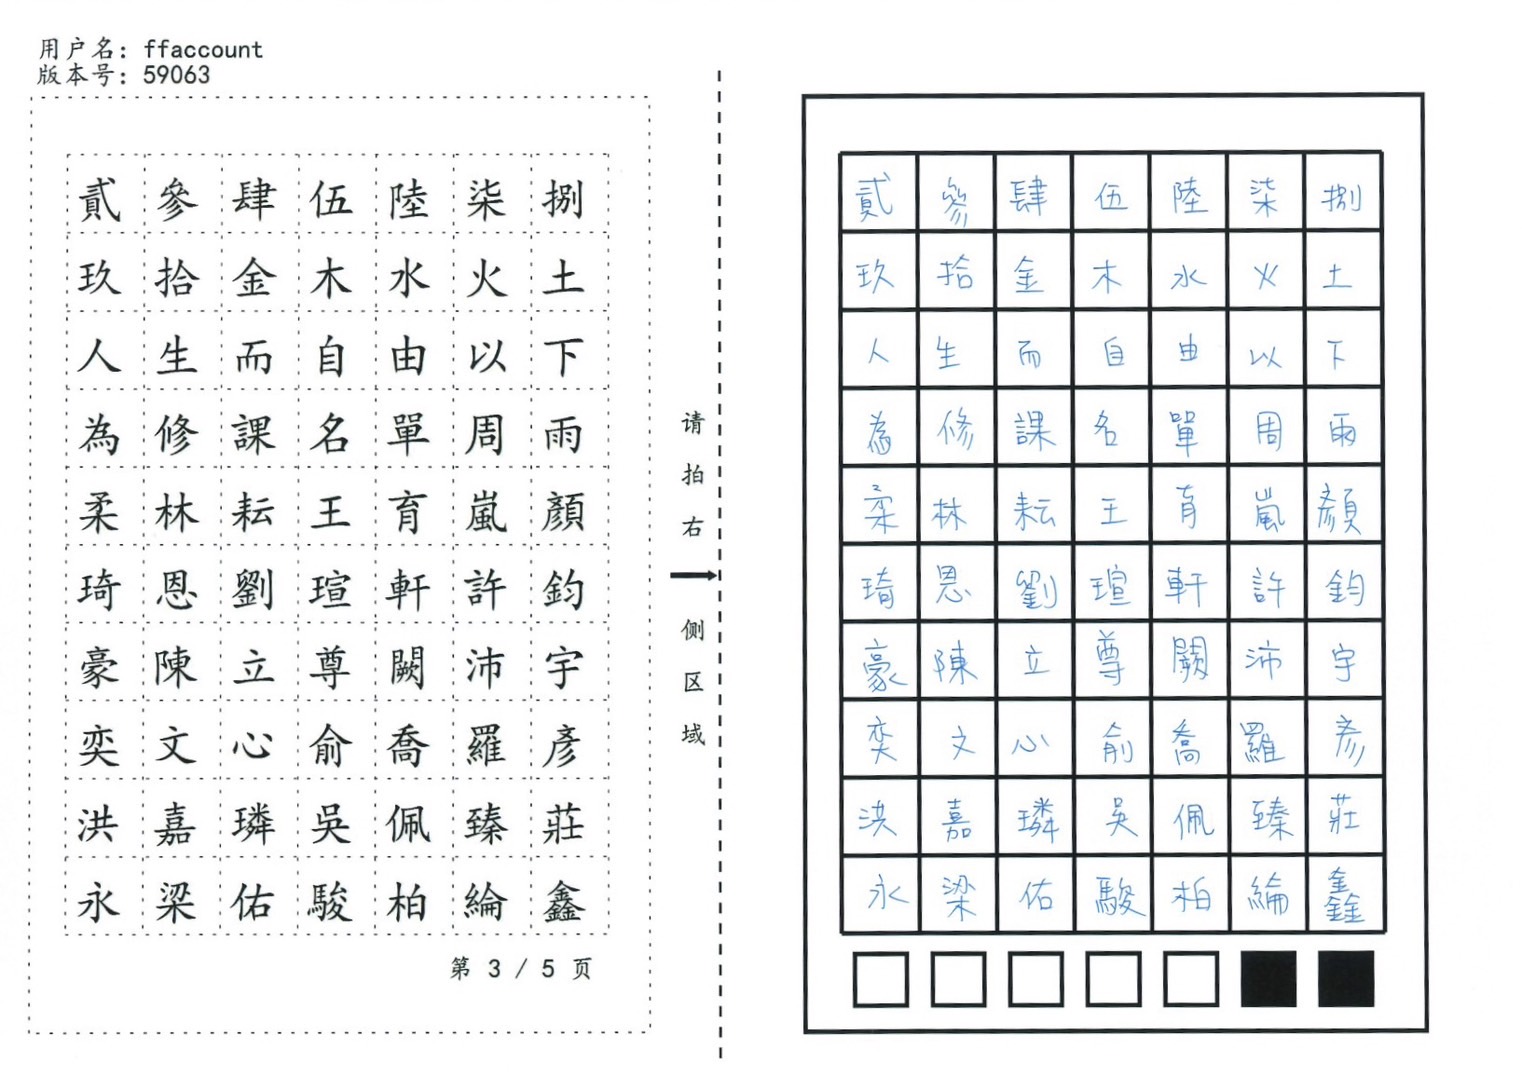 用户名: ffaccount
版本号: 59063
貳參肆伍陸柒捌
玖拾金木水火土
人生而自由以下
為修課名單周雨
柔林耘王育嵐顏
琦恩劉瑄軒許鈞
豪陳立尊闕沛宇
奕文心俞喬羅彥
洪嘉璘吳佩臻莊
永梁佑駿柏綸鑫
第 3 / 5 页
请拍右侧区域
貳參肆伍陸柒捌
玖拾金木水火土
人生而自由以下
為修課名單周雨
柔林耘王育嵐顏
琦恩劉瑄軒許鈞
豪陳立尊闕沛宇
奕文心俞喬羅彥
洪嘉璘吳佩臻莊
永梁佑駿柏綸鑫